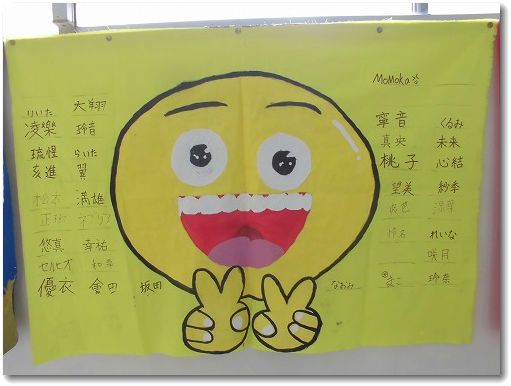 MoMoka
大翔
りいた
凌樂 玲音
琉惺 らいた
亥進 翼
松太 満雄
悠真 幸祐
セルヒオ 和希
優衣 會田 坂田
寧音 くるみ
真央 未来
桃子 心結
望美 紗季
れいな
咲月
玲奈
なおみ